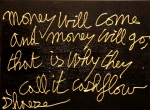 money will come
and money will go,
that is why they
call it cashflow